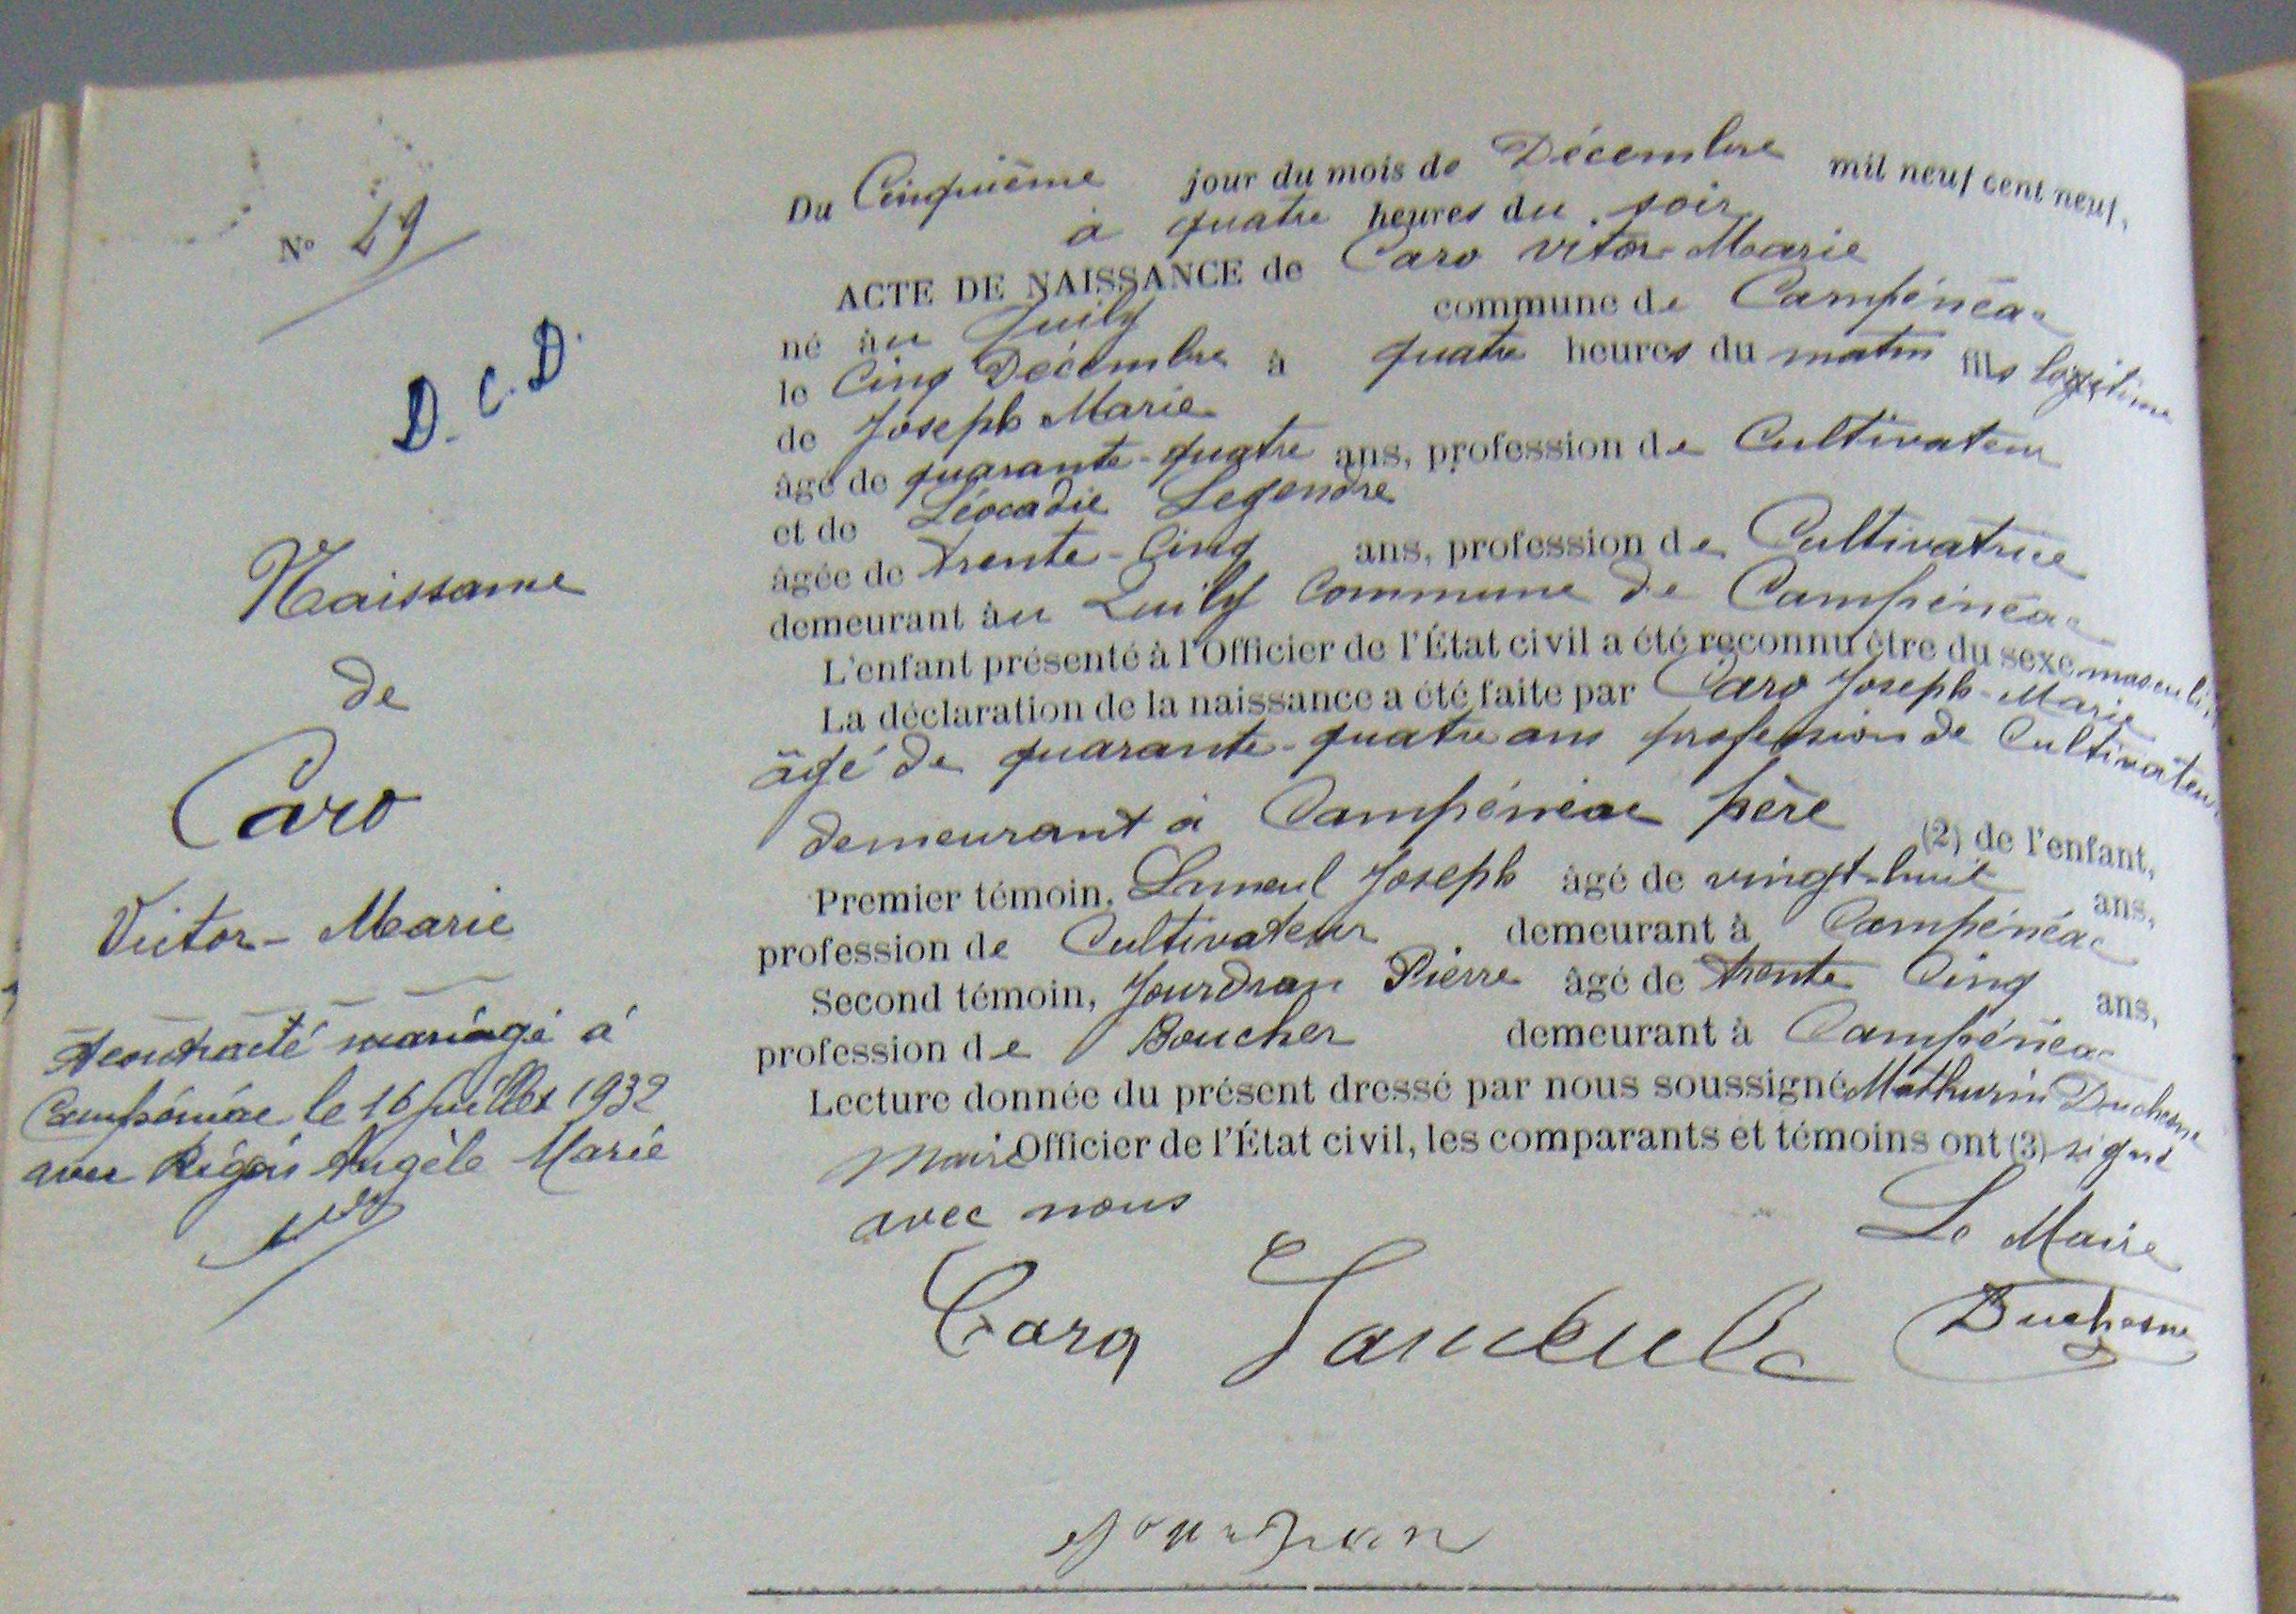 N° 49
D. C. D.
Naissance
de
Caro
Victor-Marie
A contracté mariage à
Campénéac le 16 juillet 1932
avec Régin Angèle Marie
Du Cinquième jour du mois de Décembre mil neuf cent neuf,
à quatre heures du soir
ACTE DE NAISSANCE de Caro Vitor Marie
né au Quily commune de Campénéac
le Cinq Décembre à quatre heures du matin fils légitime
de Joseph Marie
âgé de quarante-quatre ans, profession de Cultivateur
et de Léocadie Legendre
âgée de trente-Cinq ans, profession de Cultivatrice
demeurant au Quily Commune de Campénéac
L'enfant présenté à l'Officier de l'État civil a été reconnu être du sexe masculin
La déclaration de la naissance a été faite par Caro Joseph-Marie
âgé de quarante-quatre ans profession de Cultivateur
demeurant à Campénéac père (2) de l'enfant,
Premier témoin, Joseph âgé de vingt-huit ans,
profession de Cultivateur demeurant à Campénéac
Second témoin, Jourdran Pierre âgé de trente Cinq ans,
profession de Boucher demeurant à Campénéac
Lecture donnée du présent dressé par nous soussigné Mathurin Duchesne
Maire Officier de l'État civil, les comparants et témoins ont (3) signé
avec nous
Le Maire
Caro Duchesne
Jourdran